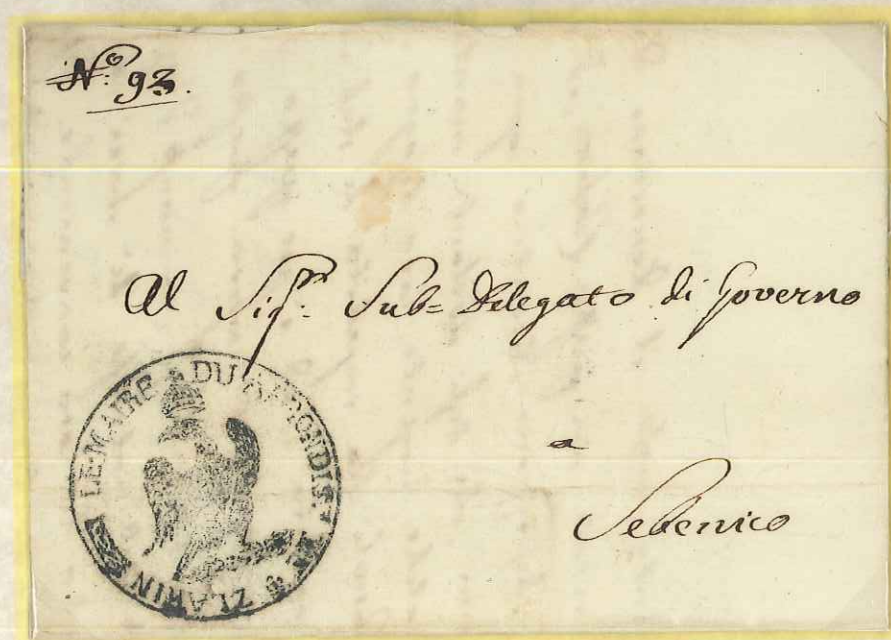 N.º 93.
Al Sig.r Sub= Delegato di Governo
a
Sebenico
LE MAIRE DU ARRONDIS.T
ZLARIN